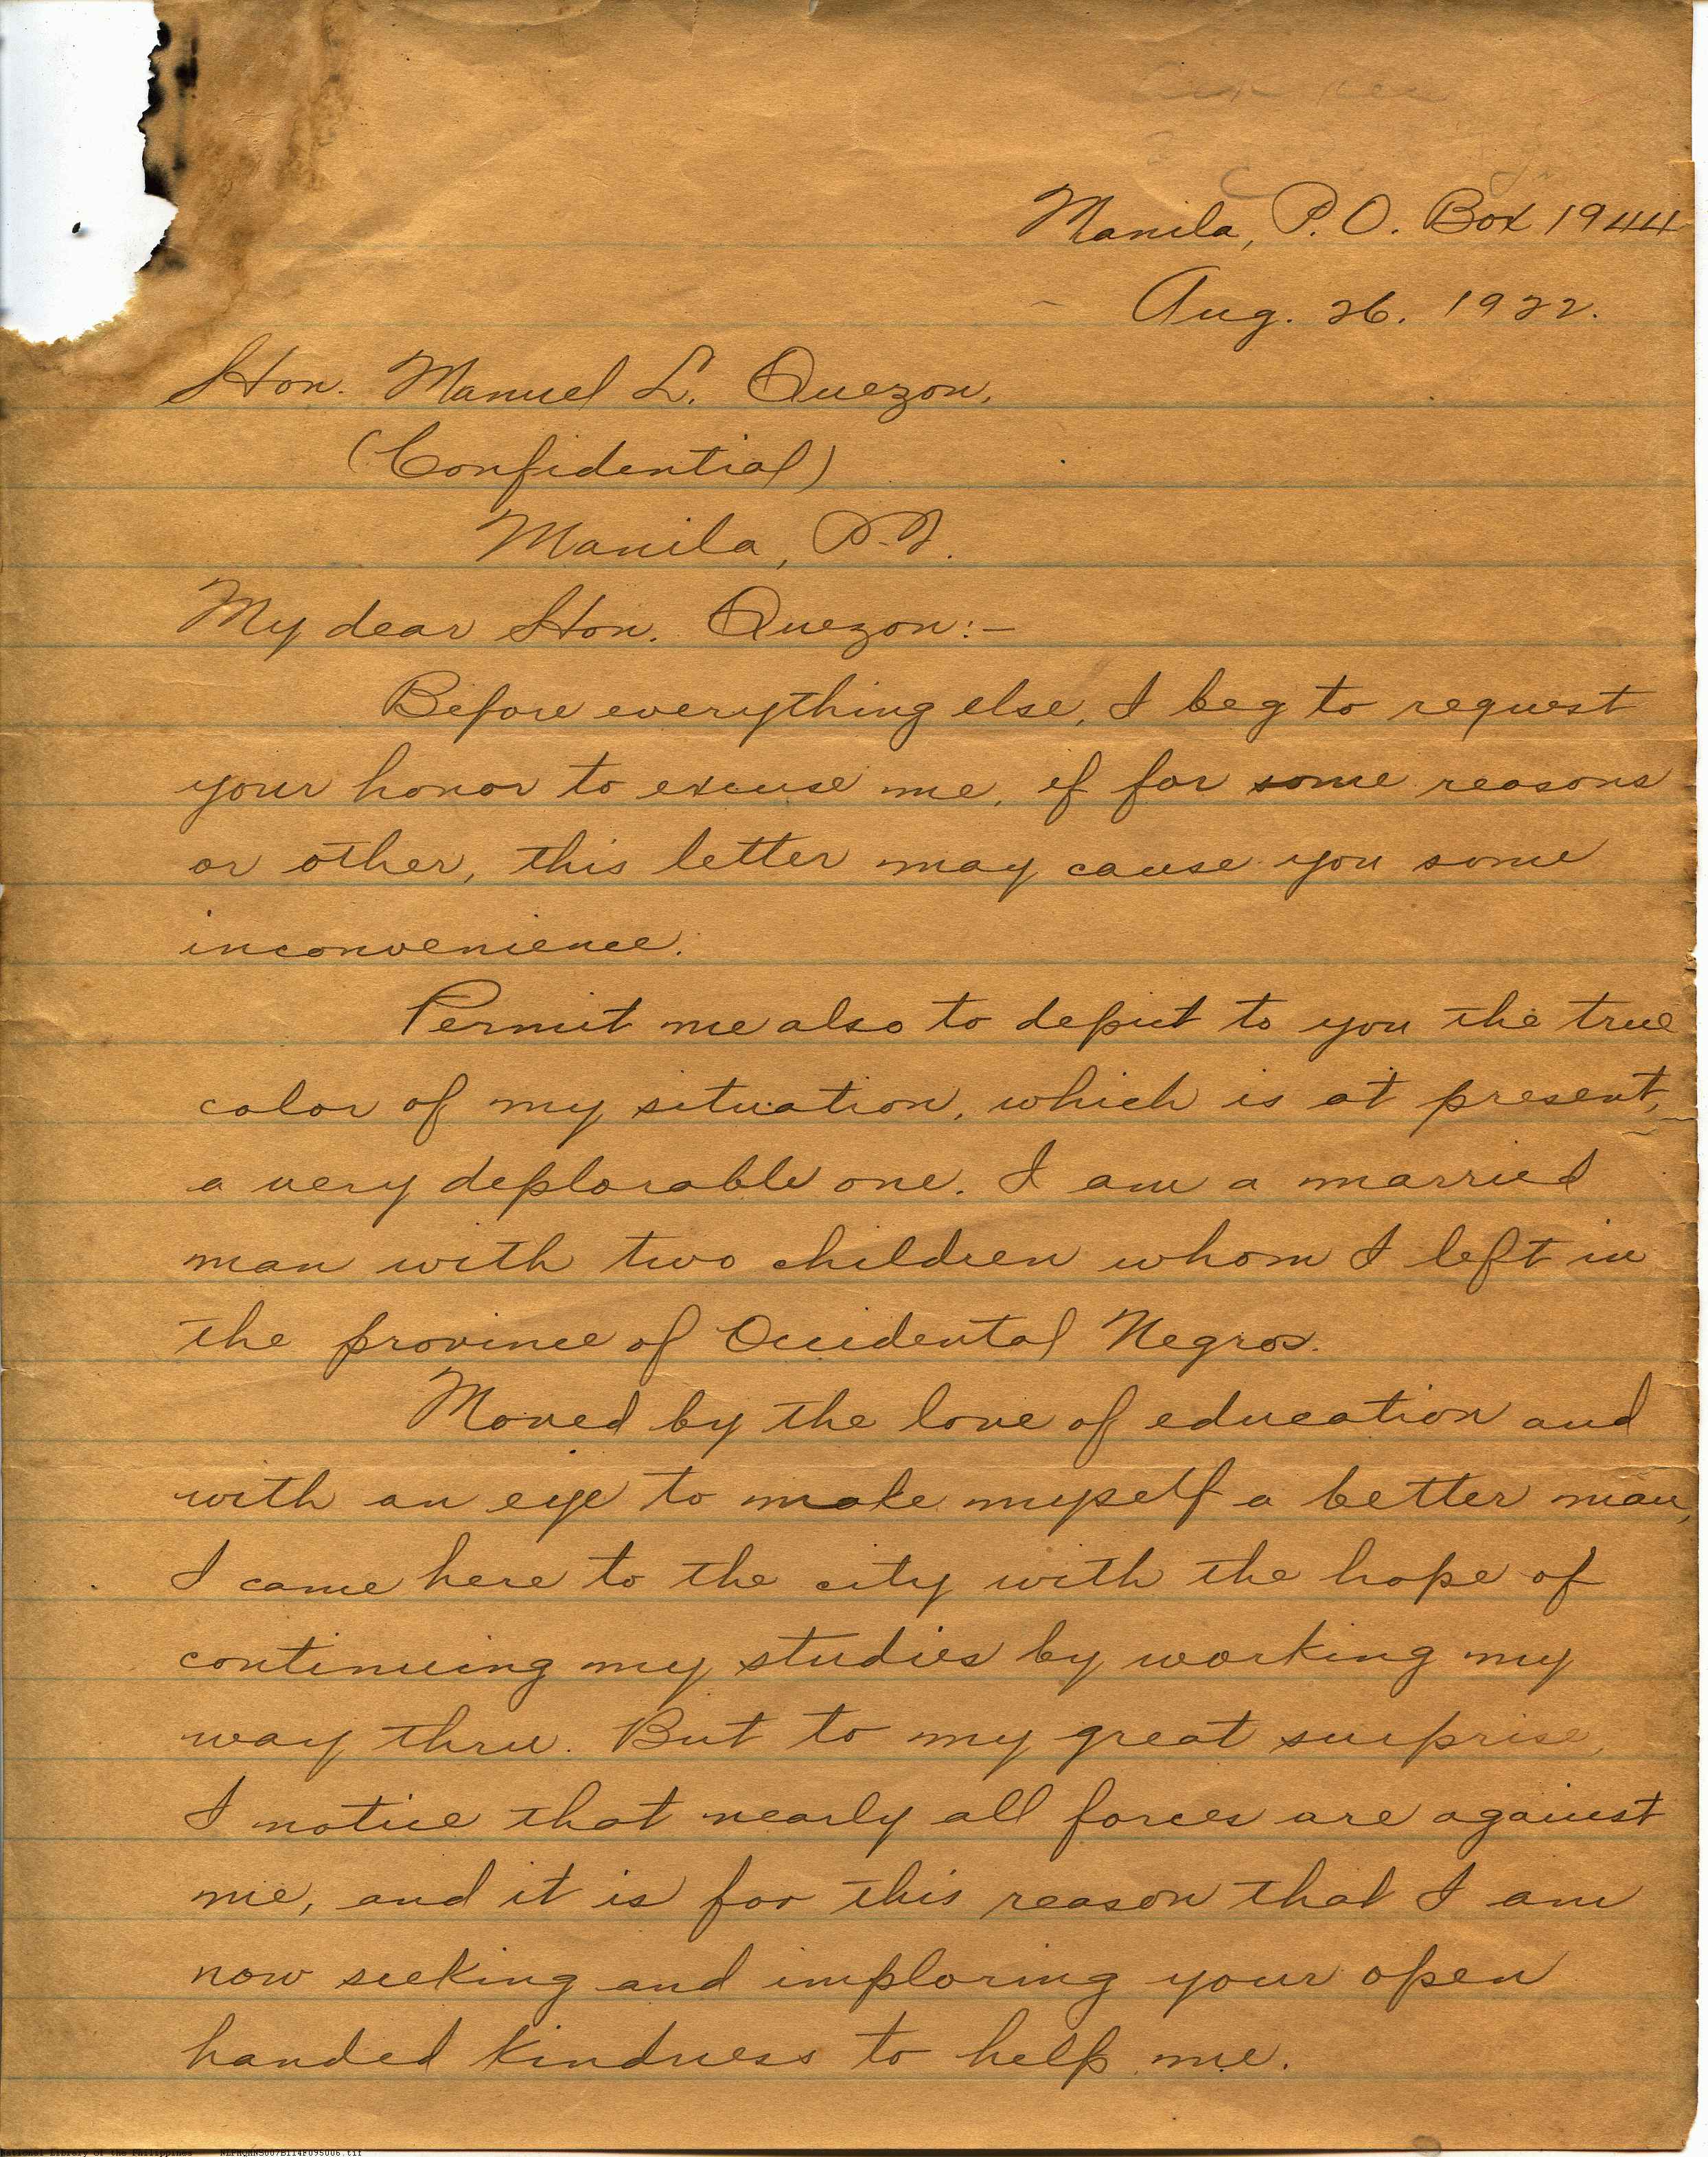 Manila, P.O. Box 1944
Aug. 26. 1922.
Hon. Manuel L. Quezon,
(Confidential)
Manila, P.I.
My dear Hon. Quezon:-
Before everything else, I beg to request
your honor to excuse me, if for some reasons
or other, this letter may cause you some
inconvenience.
Permit me also to depict to you the true
color of my situation, which is at present,
a very deplorable one. I am a married
man with two children whom I left in
the province of Occidental Negros.
Moved by the love of education and
with an eye to make myself a better man,
I came here to the city with the hope of
continuing my studies by working my
way thru. But to my great surprise,
I notice that nearly all forces are against
me, and it is for this reason that I am
now seeking and imploring your open
handed kindness to help me.
National Library of the Philippines